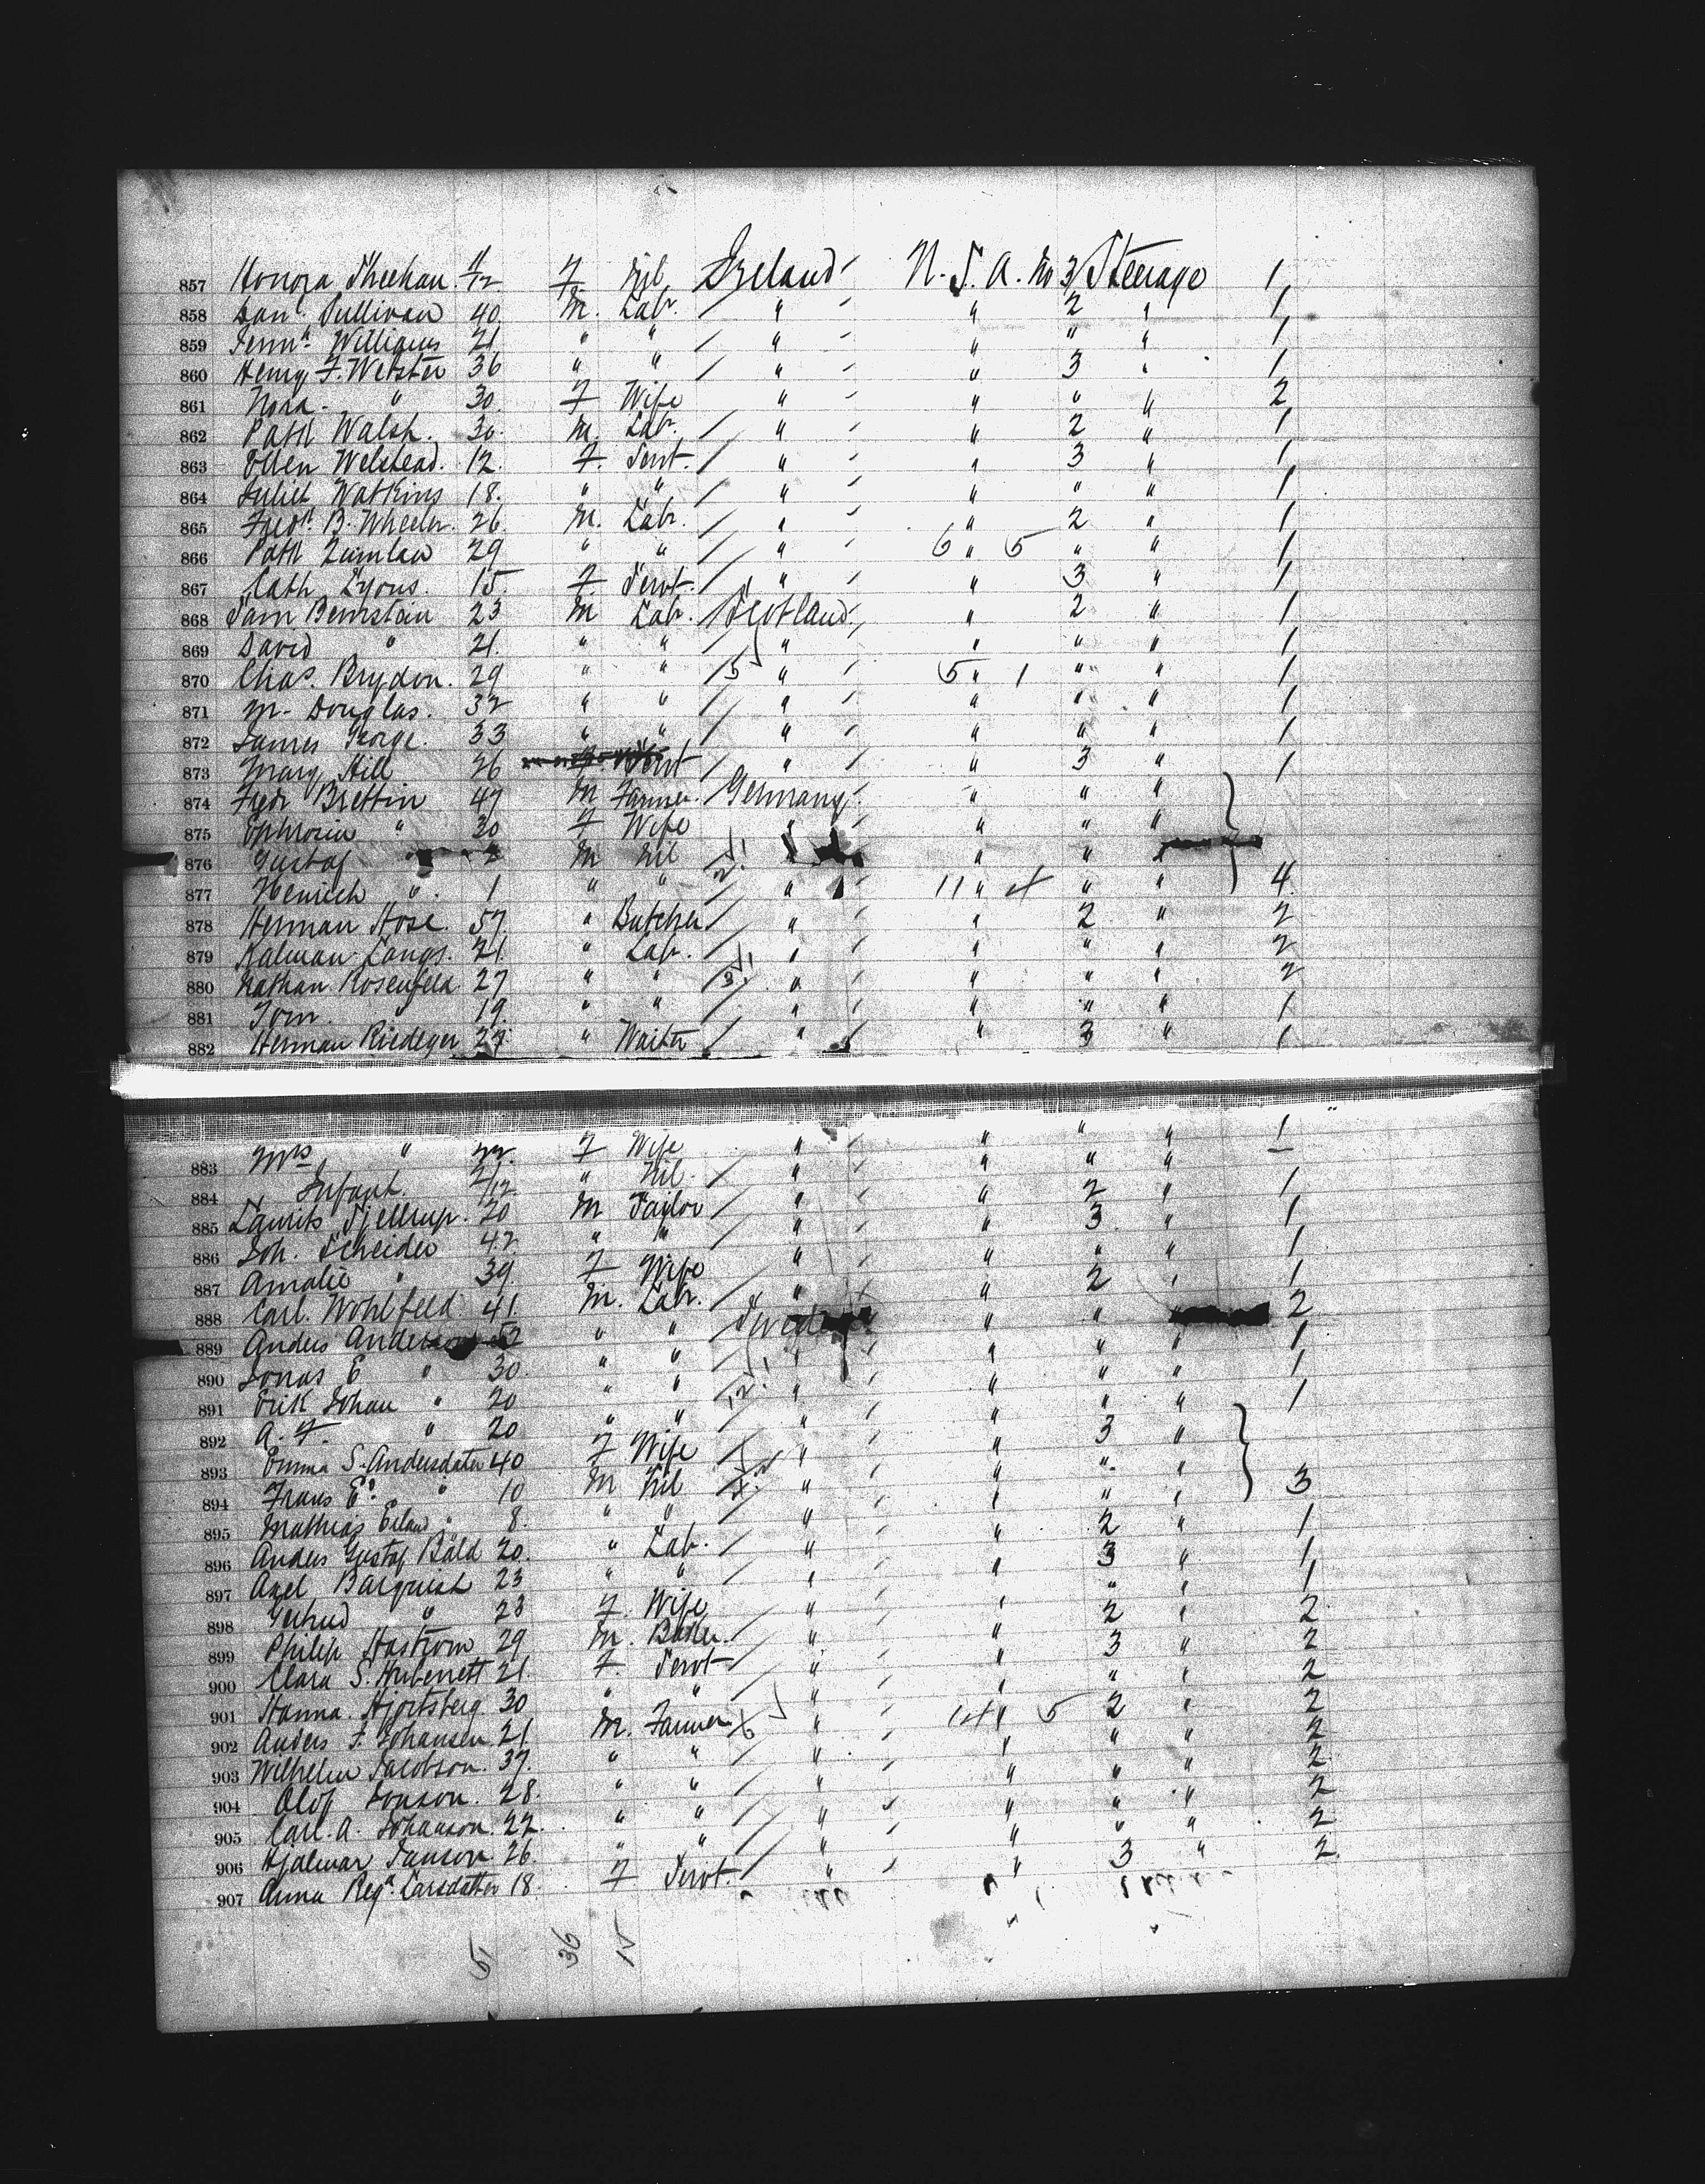 857 Honora Sheehan 11/12 F Nil Ireland U.S.A. No 3 Steerage 1
858 Danl. Sullivan 40 M. Lab. " " 2 " 1
859 Williams 21 " " " " " " 1
860 Henry F. Webster 36 " " " " 3 " 1
861 Nora " 30 F Wife " " " " 2
862 Patk Walsh. 30 M. Lab. " " 2 " 1
863 Ellen Welstead. 12. F. Servt. " " 3 " 1
864 Juliet Watkins 18. " " " " " " 1
865 Fredk B. Wheeler. 26 M. Lab. " " 2 " 1
866 Patk 29 " " " 6 " 5 " " 1
867 Cath Lyons. 15 F. Servt. " " 3 " 1
868 Sam Bernstein 23 M Lab. Scotland " 2 " 1
869 David " 21. " " " " " " 1
870 Chas. Brydon. 29 " " 5 " 5 " 1 " " 1
871 M. Douglas. 32 " " " " " " 1
872 James George. 33 " " " " " " 1
873 Mary Hill 26 Servt " " 3 " 1
874 Fredr Brettin 47 M Farmer Germany " " "
875 " 30 F Wife " " " "
876 Gustaf " M Nil " " " "
877 Henrich " 1 " " " 11 " 4 " " 4.
878 Herman Hose. 57 " Butcher " " 2 " 2
879 Kalman Langs. 21. " Lab. " " " " 2
880 Nathan Rosenfeld 27 " " 3 " " " " 2
881 Tom. " 19. " " " " " " 1
882 Herman Riedeger 27. " Waiter " " 3 " 1
883 Mrs. " 22. F Wife " " " " 1
884 Infant. 2/12 " Nil. " " " "
885 Laurits Tjellrup. 20 M Tailor " " 2 " 1
886 Joh. Scheider 42 " " " " 3 " 1
887 Amalie " 39 F Wife " " " " 1
888 Carl. Wohlfeld 41. M. Lab. " " 2 " 1
889 Anders Anderson 52 " " Sweden " " " 2
890 Jonas E " 30 " " " " " " 1
891 Erik Johan " 20 " " " " " " 1
892 A. F. " 20 " " " " " " 1
893 Emma S. Andersdater 40 F Wife " " 3 "
894 Frans E. " 10 M Nil " " " "
895 Mathias " 8. " " " " " " 3
896 Anders Gustaf Bäld 20. " Lab. " " 2 " 1
897 Axel 23 " " " " 3 " 1
898 Gertrud " 23 F. Wife " " " " 1
899 Philip Hastrom 29 M. " " 2 " 2
900 Clara S. 21. F. Servt " " 3 " 2
901 Hanna. Hjortsberg 30 " " " " " " 2
902 Anders F. Johansen 21. M. Farmer 6 " 14 " 5 2 " 2
903 Wilhelm Jacobson. 37. " " " " " " 2
904 Olof Jonson. 28. " " " " " " 2
905 Carl. A. Johanson. 22. " " " " " " 2
906 Hjalmar Janson 26. " " " " " " 2
907 Anna Rega. Larsdatter 18. F Servt. " " 3 " 2.
36 15